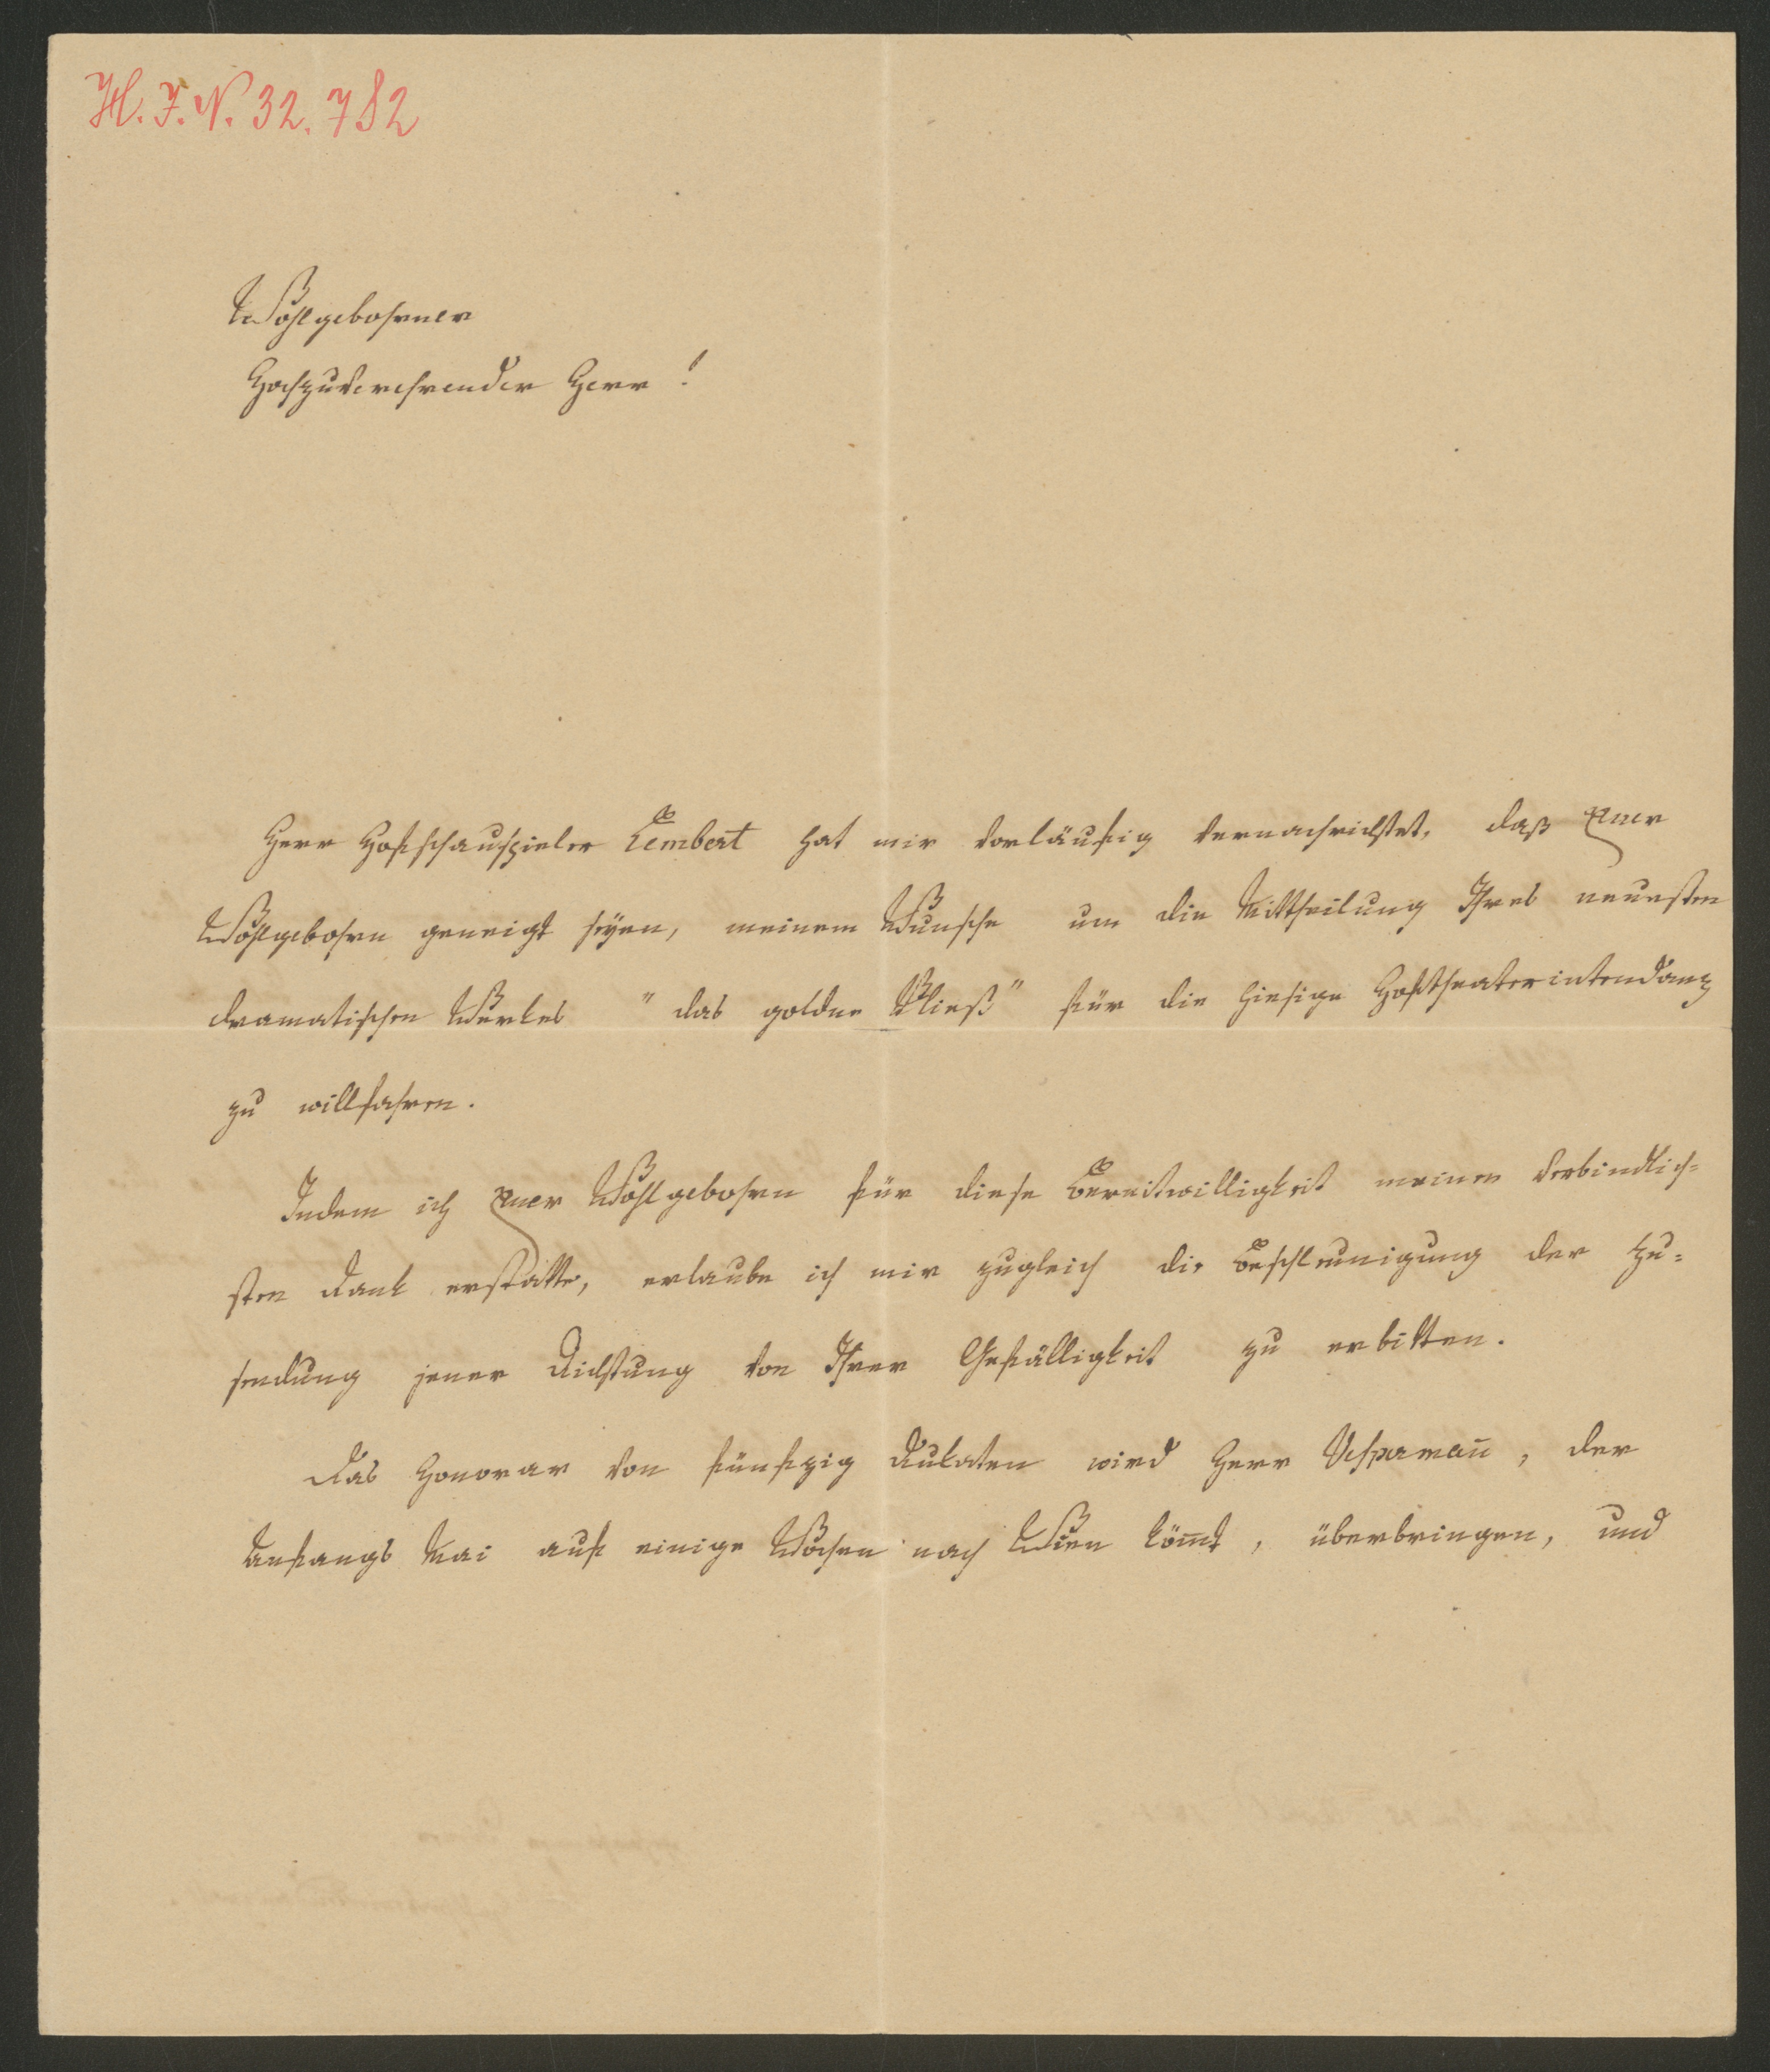 H. J. N. 32.782
Wohlgebohrner
Hochzuverehrender Herr!
Herr Hofschauspieler Lembert hat mir vorläufig vernachrichtet, daß Euer
Wohlgebohrn geneigt seyen, meinem Wunsche um die Mittheilung Ihres neuesten
dramatischen Werkes "das goldne Vließ" für die hiesige Hoftheaterintendanz
zu willfahren.
Indem ich Euer Wohlgebohrn für diese Bereitwilligkeit meinen verbindlich=
sten Dank erstatte, erlaube ich mir zugleich die Beschleunigung der Zu=
sendung jener Dichtung von Ihrer Gefälligkeit zu erbitten.
Das Honorar von fünfzig Dukaten wird Herr Vespermañ, der
Anfangs Mai auf einige Wochen nach Wien köm̄t, überbringen, und